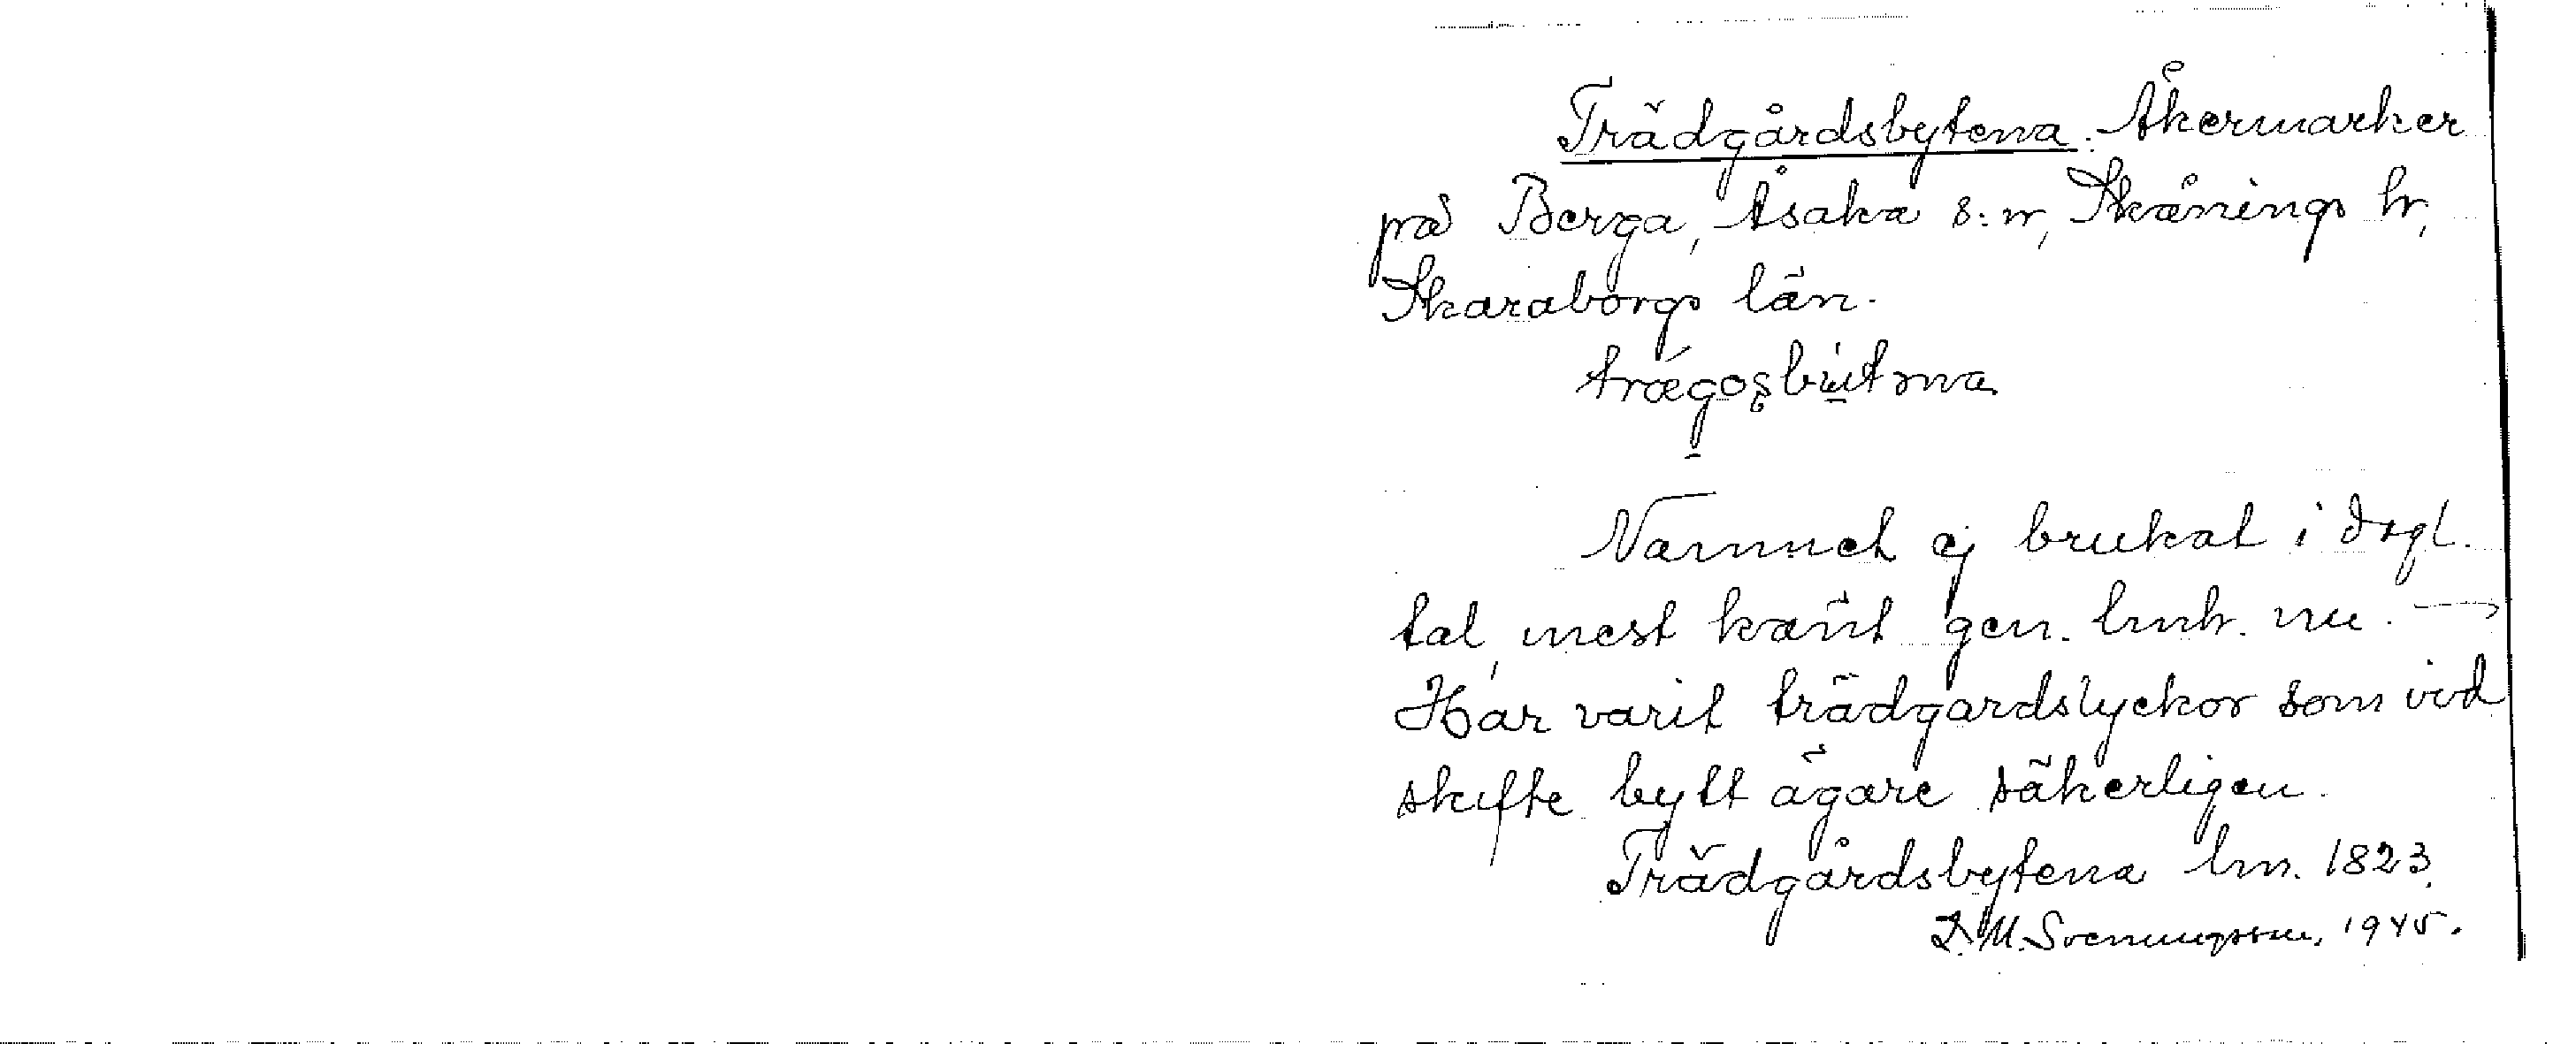 Trädgårdsbytena. Åkermarker
på Berga, Åsaka s:n, Skånings hr,
Skaraborgs län.
Namnet ej brukat i dagl.
tal, mest känt gen. lmk. nu. —
Har varit trädgårdslyckor som vid
skifte bytt ägare säkerligen.
Trädgårdsbytena lm. 1823.
D. M. Svenungsson, 1945.